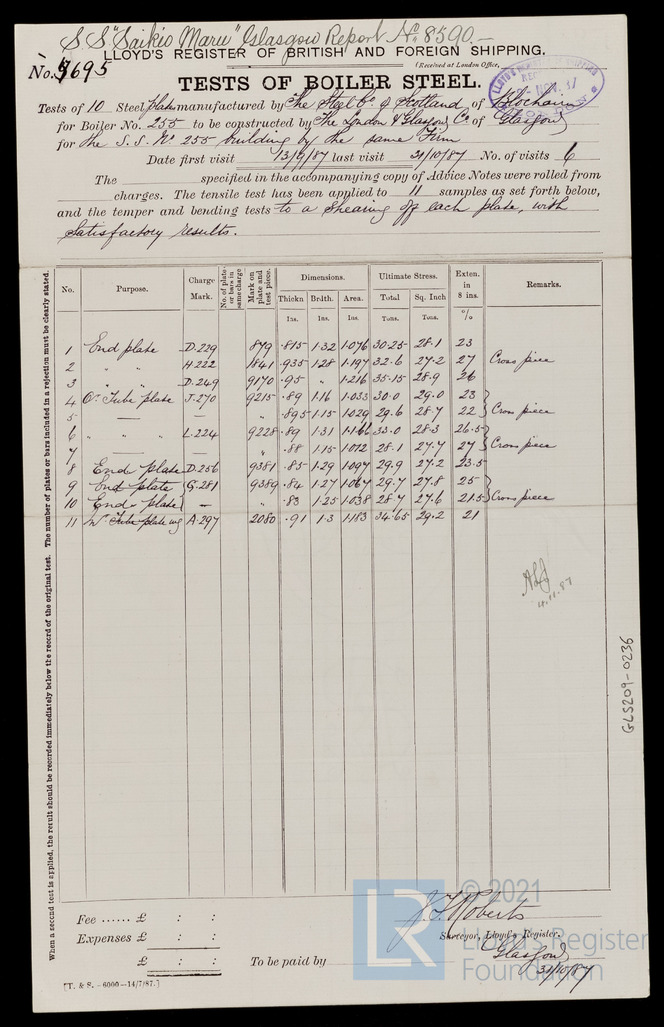 S.S. "Saikio Maru" Glasgow Report No. 8590.—
LLOYD'S REGISTER OF BRITISH AND FOREIGN SHIPPING.
No. 3695
(Received at London Office,
TESTS OF BOILER STEEL.
Tests of 10 Steel Plates manufactured by The Steel Co. of Scotland, of Blochairn
for Boiler No. 255 to be constructed by The London & Glasgow Co. of Glasgow
for the S.S. No. 255 building by the same Firm
Date first visit 13/9/87 last visit 21/10/87 No. of visits 6
The specified in the accompanying copy of Advice Notes were rolled from
charges. The tensile test has been applied to 11 samples as set forth below,
and the temper and bending tests to a shearing off each plate, with
satisfactory results.
When a second test is applied, the result should be recorded immediately below the record of the original test. The number of plates or bars included in a rejection must be clearly stated.
No. Purpose. Charge Mark. No. of plates or bars in same charge Mark on plate and test piece. Dimensions. Ultimate Stress. Exten. in 8 ins. Remarks.
Thickn Brdth. Area. Total Sq. Inch
Ins. Ins. Ins. Tons. Tons. %
1 End plate D.229 879 .815 1.32 1.076 30.25 28.1 23
2 " " H.222 1841 .935 1.28 1.197 32.6 27.2 27 Cross piece
3 " " D.249 9170 .95 " 1.216 35.15 28.9 26
4 Or Tube plate J.270 9215 .89 1.16 1.033 30.0 29.0 23
5 — — " .895 1.15 1.029 29.6 28.7 22 Cross piece
6 " " " L.224 9228 .89 1.31 1.166 33.0 28.3 26.5
7 — — " .88 1.15 1.012 28.1 27.7 27 Cross piece
8 End plate D.256 9381 .85 1.29 1.097 29.9 27.2 23.5
9 End plate G.281 9389 .84 1.27 1.067 29.7 27.8 25
10 End plate — " .83 1.25 1.038 28.7 27.6 21.5 Cross piece
11 Tube plate A.297 2080 .91 1.3 1.183 34.65 29.2 21
4.11.87
GLS209-0236
Fee ...... £ : :
Expenses £ : :
£ : :
To be paid by
J. Roberts
Surveyor, Lloyd's Register.
Glasgow
31/10/87
[T. & S. - 6000—14/7/87.]
LR
© 2021
Lloyd's Register
Foundation